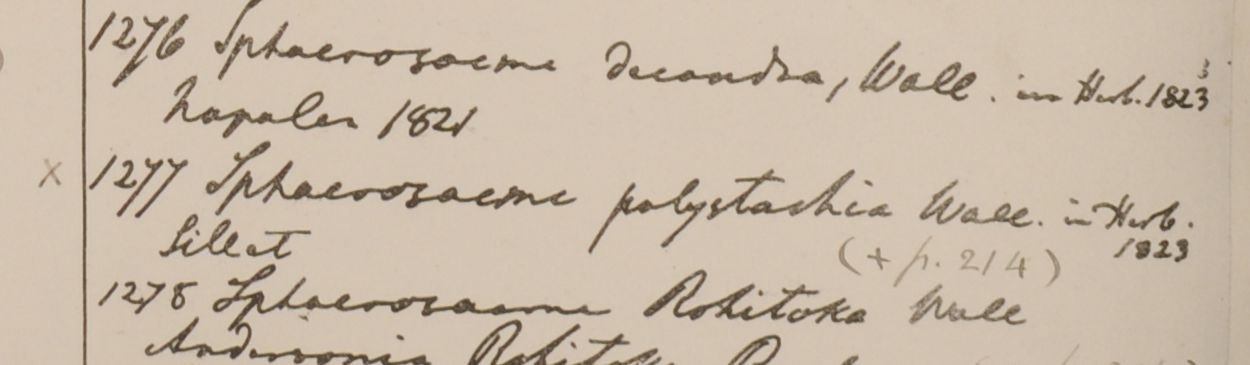 1276 Sphaerosacme decandra, Wall. in Herb. 1823
Napalea 1821
x 1277 Sphaerosacme polystachia Wall. in Herb.
1823
Sillet
(+ p. 214)
1278 Sphaerosacme Rohitoka Wall
Andersonia Rohitoka